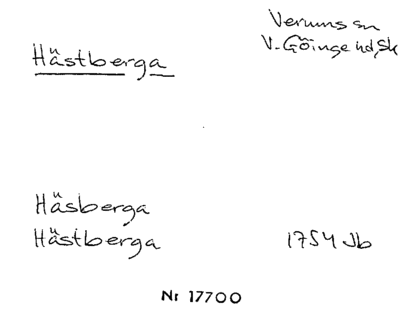 Verums sn
Hästberga
V-Göinge hd, Sk
Häsberga
Hästberga 1754 Jb
Nr 17700